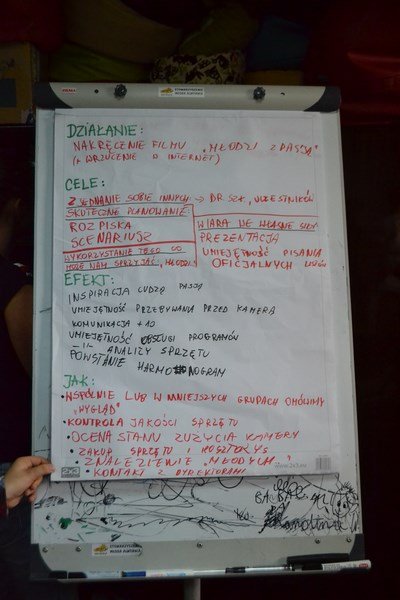 DZIAŁANIE:
NAKRĘCENIE FILMU „MŁODZI Z PASJĄ"
(+ WRZUCENIE W INTERNET)
CELE:
ZJEDNANIE SOBIE INNYCH: → DR SZK, UCZESTNIKÓW
SKUTECZNE PLANOWANIE:
ROZPISKA
SCENARIUSZ
WIARA WE WŁASNE SIŁY
PREZENTACJA
UMIEJĘTNOŚĆ PISANIA
OFICJALNYCH LISTÓW
WYKORZYSTANIE TEGO CO
MOŻE NAM SPRZYJAĆ:
EFEKT:
INSPIRACJA CUDZĄ PASJĄ
UMIEJĘTNOŚĆ PRZEBYWANIA PRZED KAMERĄ
KOMUNIKACJA +10
UMIEJĘTNOŚĆ OBSŁUGI PROGRAMÓW
-||- ANALIZY SPRZĘTU
POWSTANIE HARMONOGRAM
JAK:
• WSPÓLNIE LUB W MNIEJSZYCH GRUPACH OMÓWIMY
„WYGLĄD"
• KONTROLA JAKOŚCI SPRZĘTU
• OCENA STANU ZUŻYCIA KAMERY
• ZAKUP SPRZĘTU I KOSZTORYS
• ZNALEZIENIE „MŁODYCH..."
• KONTAKT Z DYREKTORAMI
2x3
www.2x3.eu